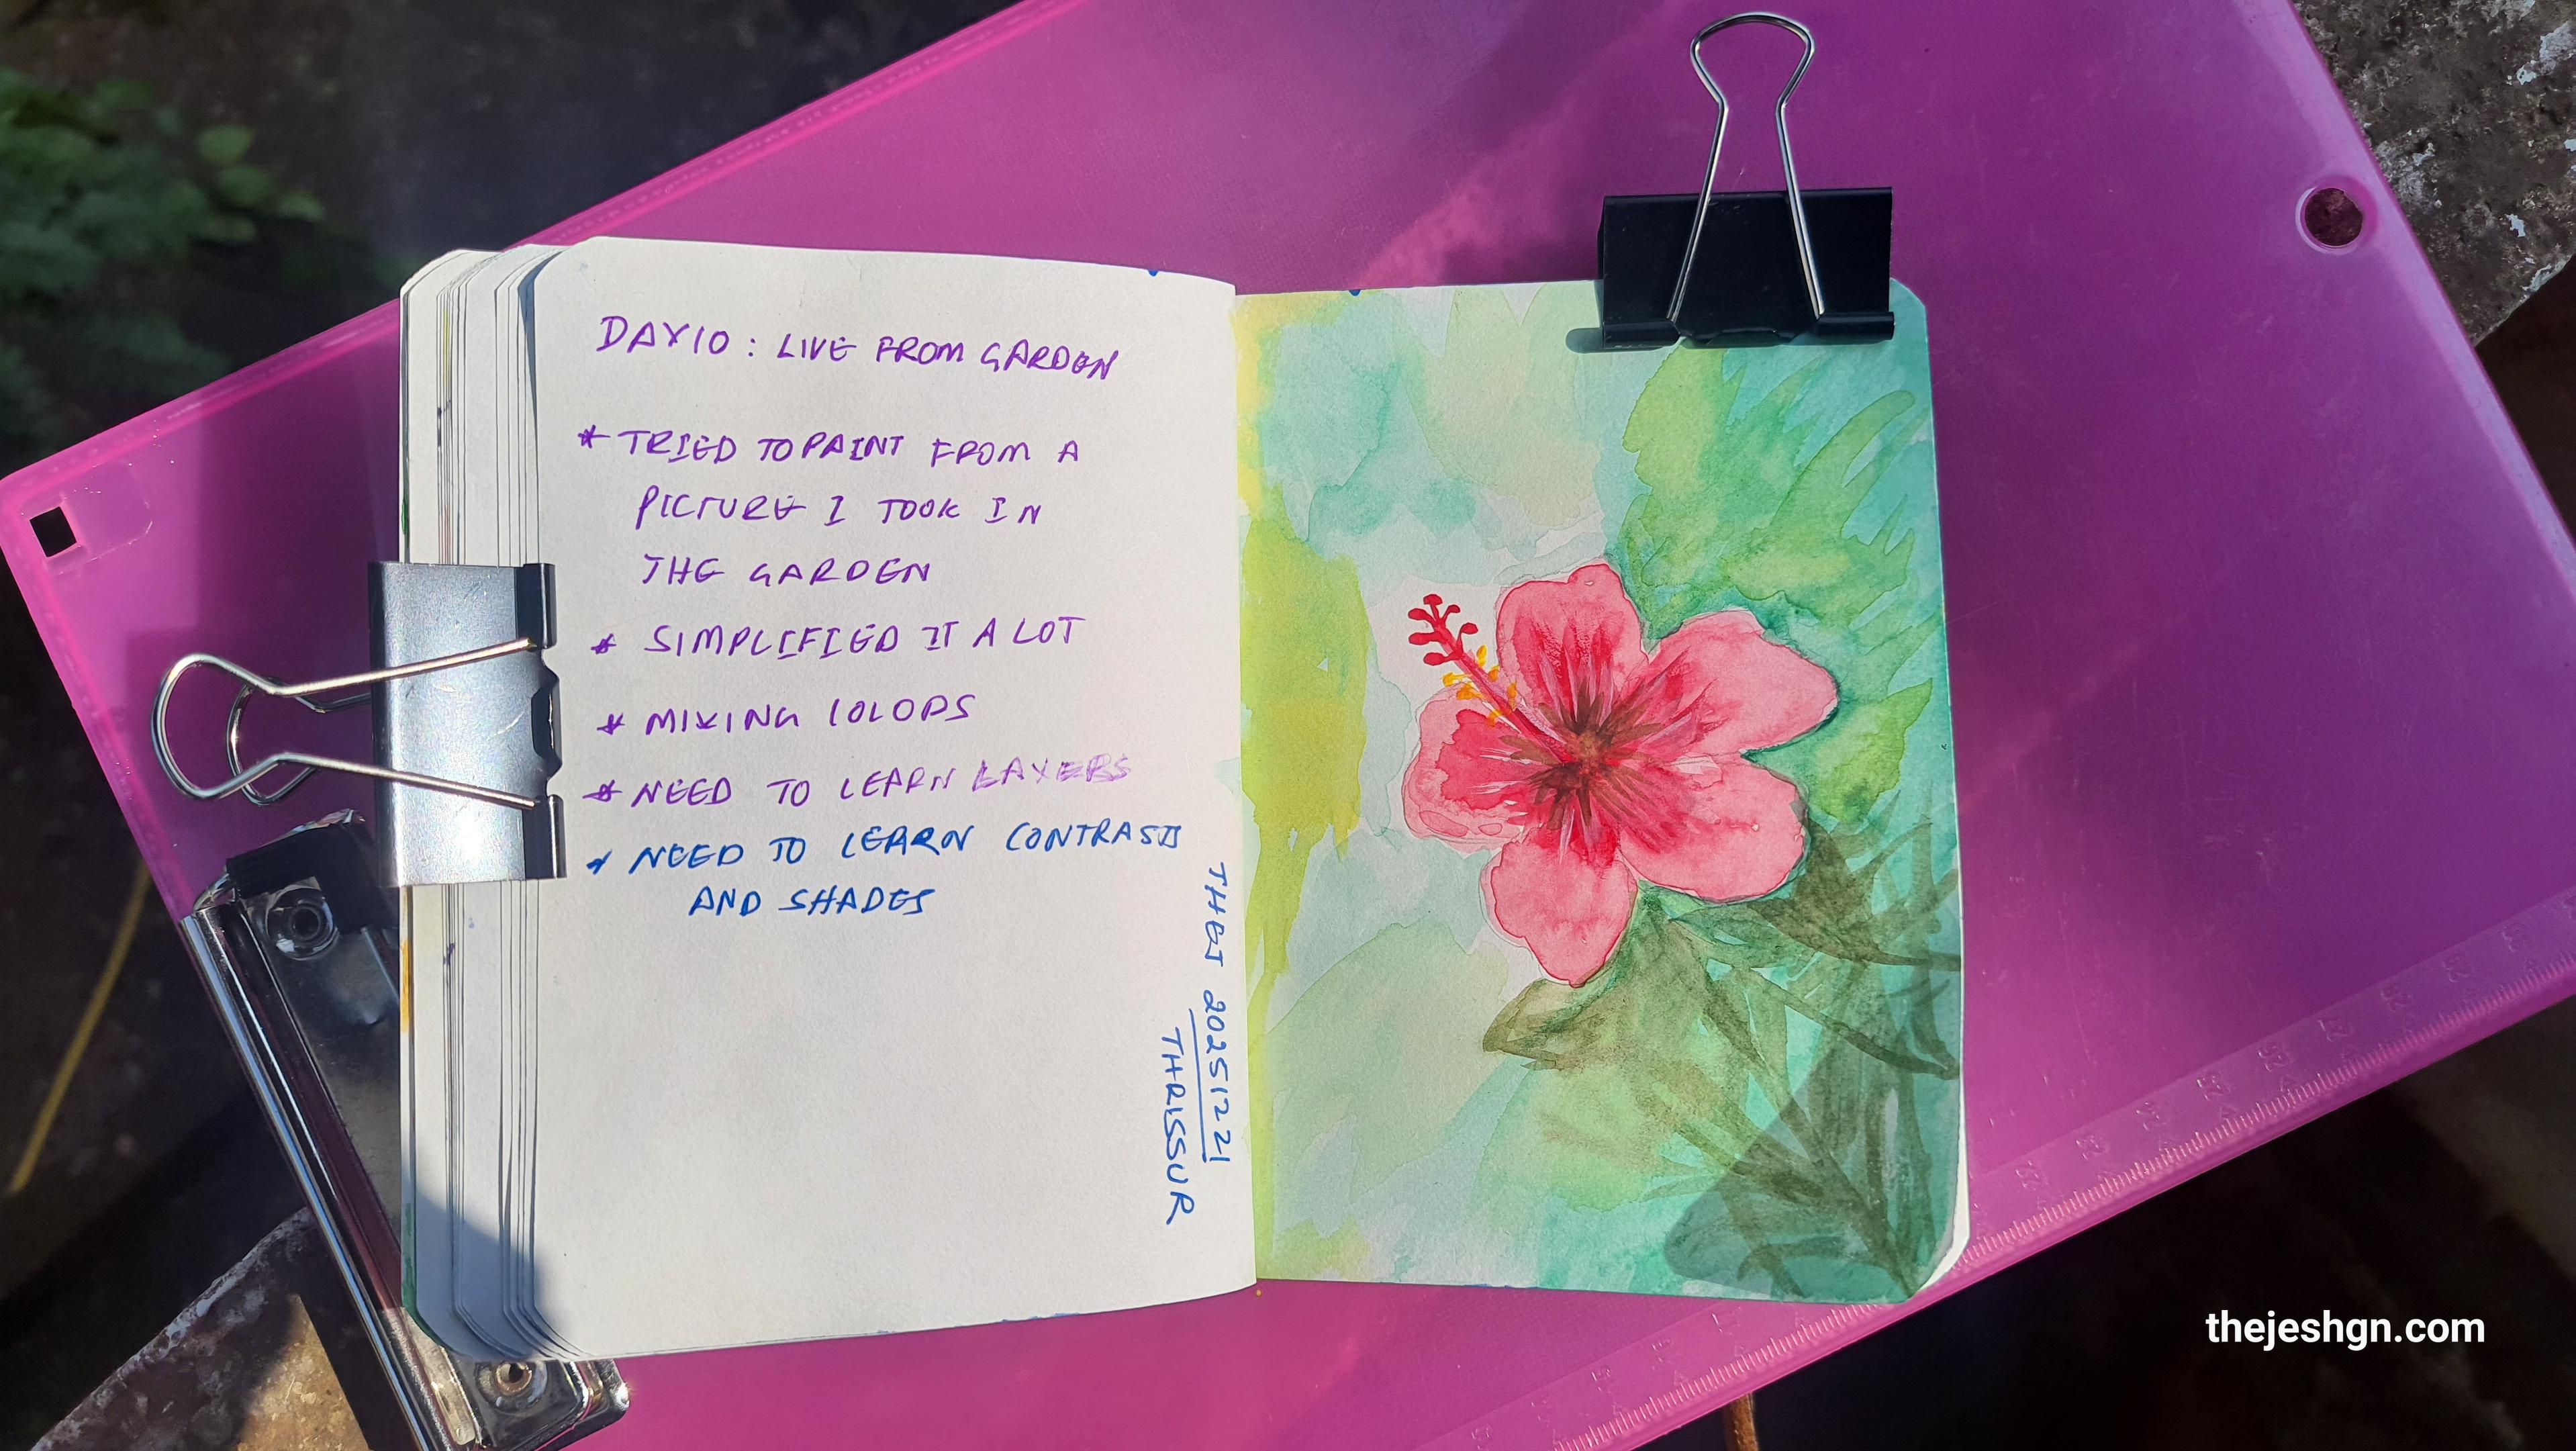 DAY10 : LIVE FROM GARDEN
* TRIED TO PAINT FROM A
PICTURE I TOOK IN
THE GARDEN
* SIMPLIFIED IT A LOT
* MIXING COLORS
* NEED TO LEARN LAYERS
* NEED TO LEARN CONTRASTS
AND SHADES
THEJ 20251221
THRISSUR
thejeshgn.com